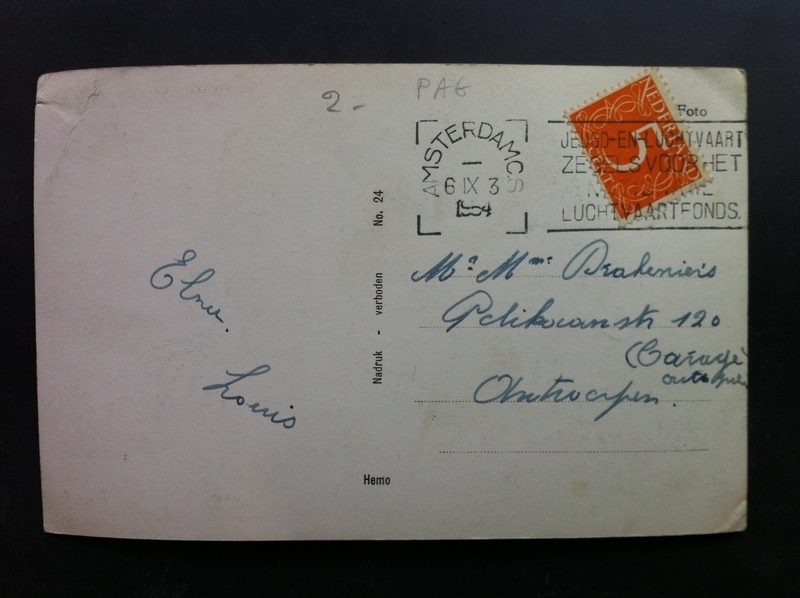 2-
PAG
Foto
NEDERLAND
5
AMSTERDAM C.S
6 IX 3
1954
JEUGD-EN-LUCHTVAART
ZEGELS VOOR HET
LUCHTVAARTFONDS.
No. 24
Nadruk - verboden
Hemo
Louis
Mr Mme
Pelikaanstr 120
(Garage
Antwerpen.